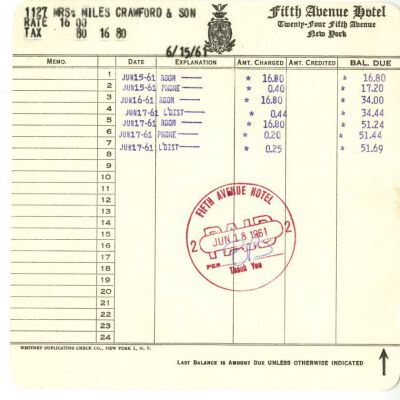 1127 MRS. MILES CRAWFORD & SON
RATE 16 00
TAX 80 16 80
6/15/61
Fifth Avenue Hotel
Twenty-Four Fifth Avenue
New York
MEMO. DATE EXPLANATION AMT. CHARGED AMT. CREDITED BAL. DUE
1 JUN15-61 ROOM * 16.80 * 16.80
2 JUN15-61 PHONE * 0.40 * 17.20
3 JUN16-61 ROOM * 16.80 * 34.00
4 JUN17-61 L'DIST * 0.44 * 34.44
5 JUN17-61 ROOM * 16.80 * 51.24
6 JUN17-61 PHONE * 0.20 * 51.44
7 JUN17-61 L'DIST * 0.25 * 51.69
8
9
10
11
12
13
14
15
16
17
18
19
20
21
22
23
24
FIFTH AVENUE HOTEL
PAID
2 JUN 18 1961 2
PER
Thank You
WHITNEY DUPLICATING CHECK CO., NEW YORK 1, N. Y.
LAST BALANCE IS AMOUNT DUE UNLESS OTHERWISE INDICATED